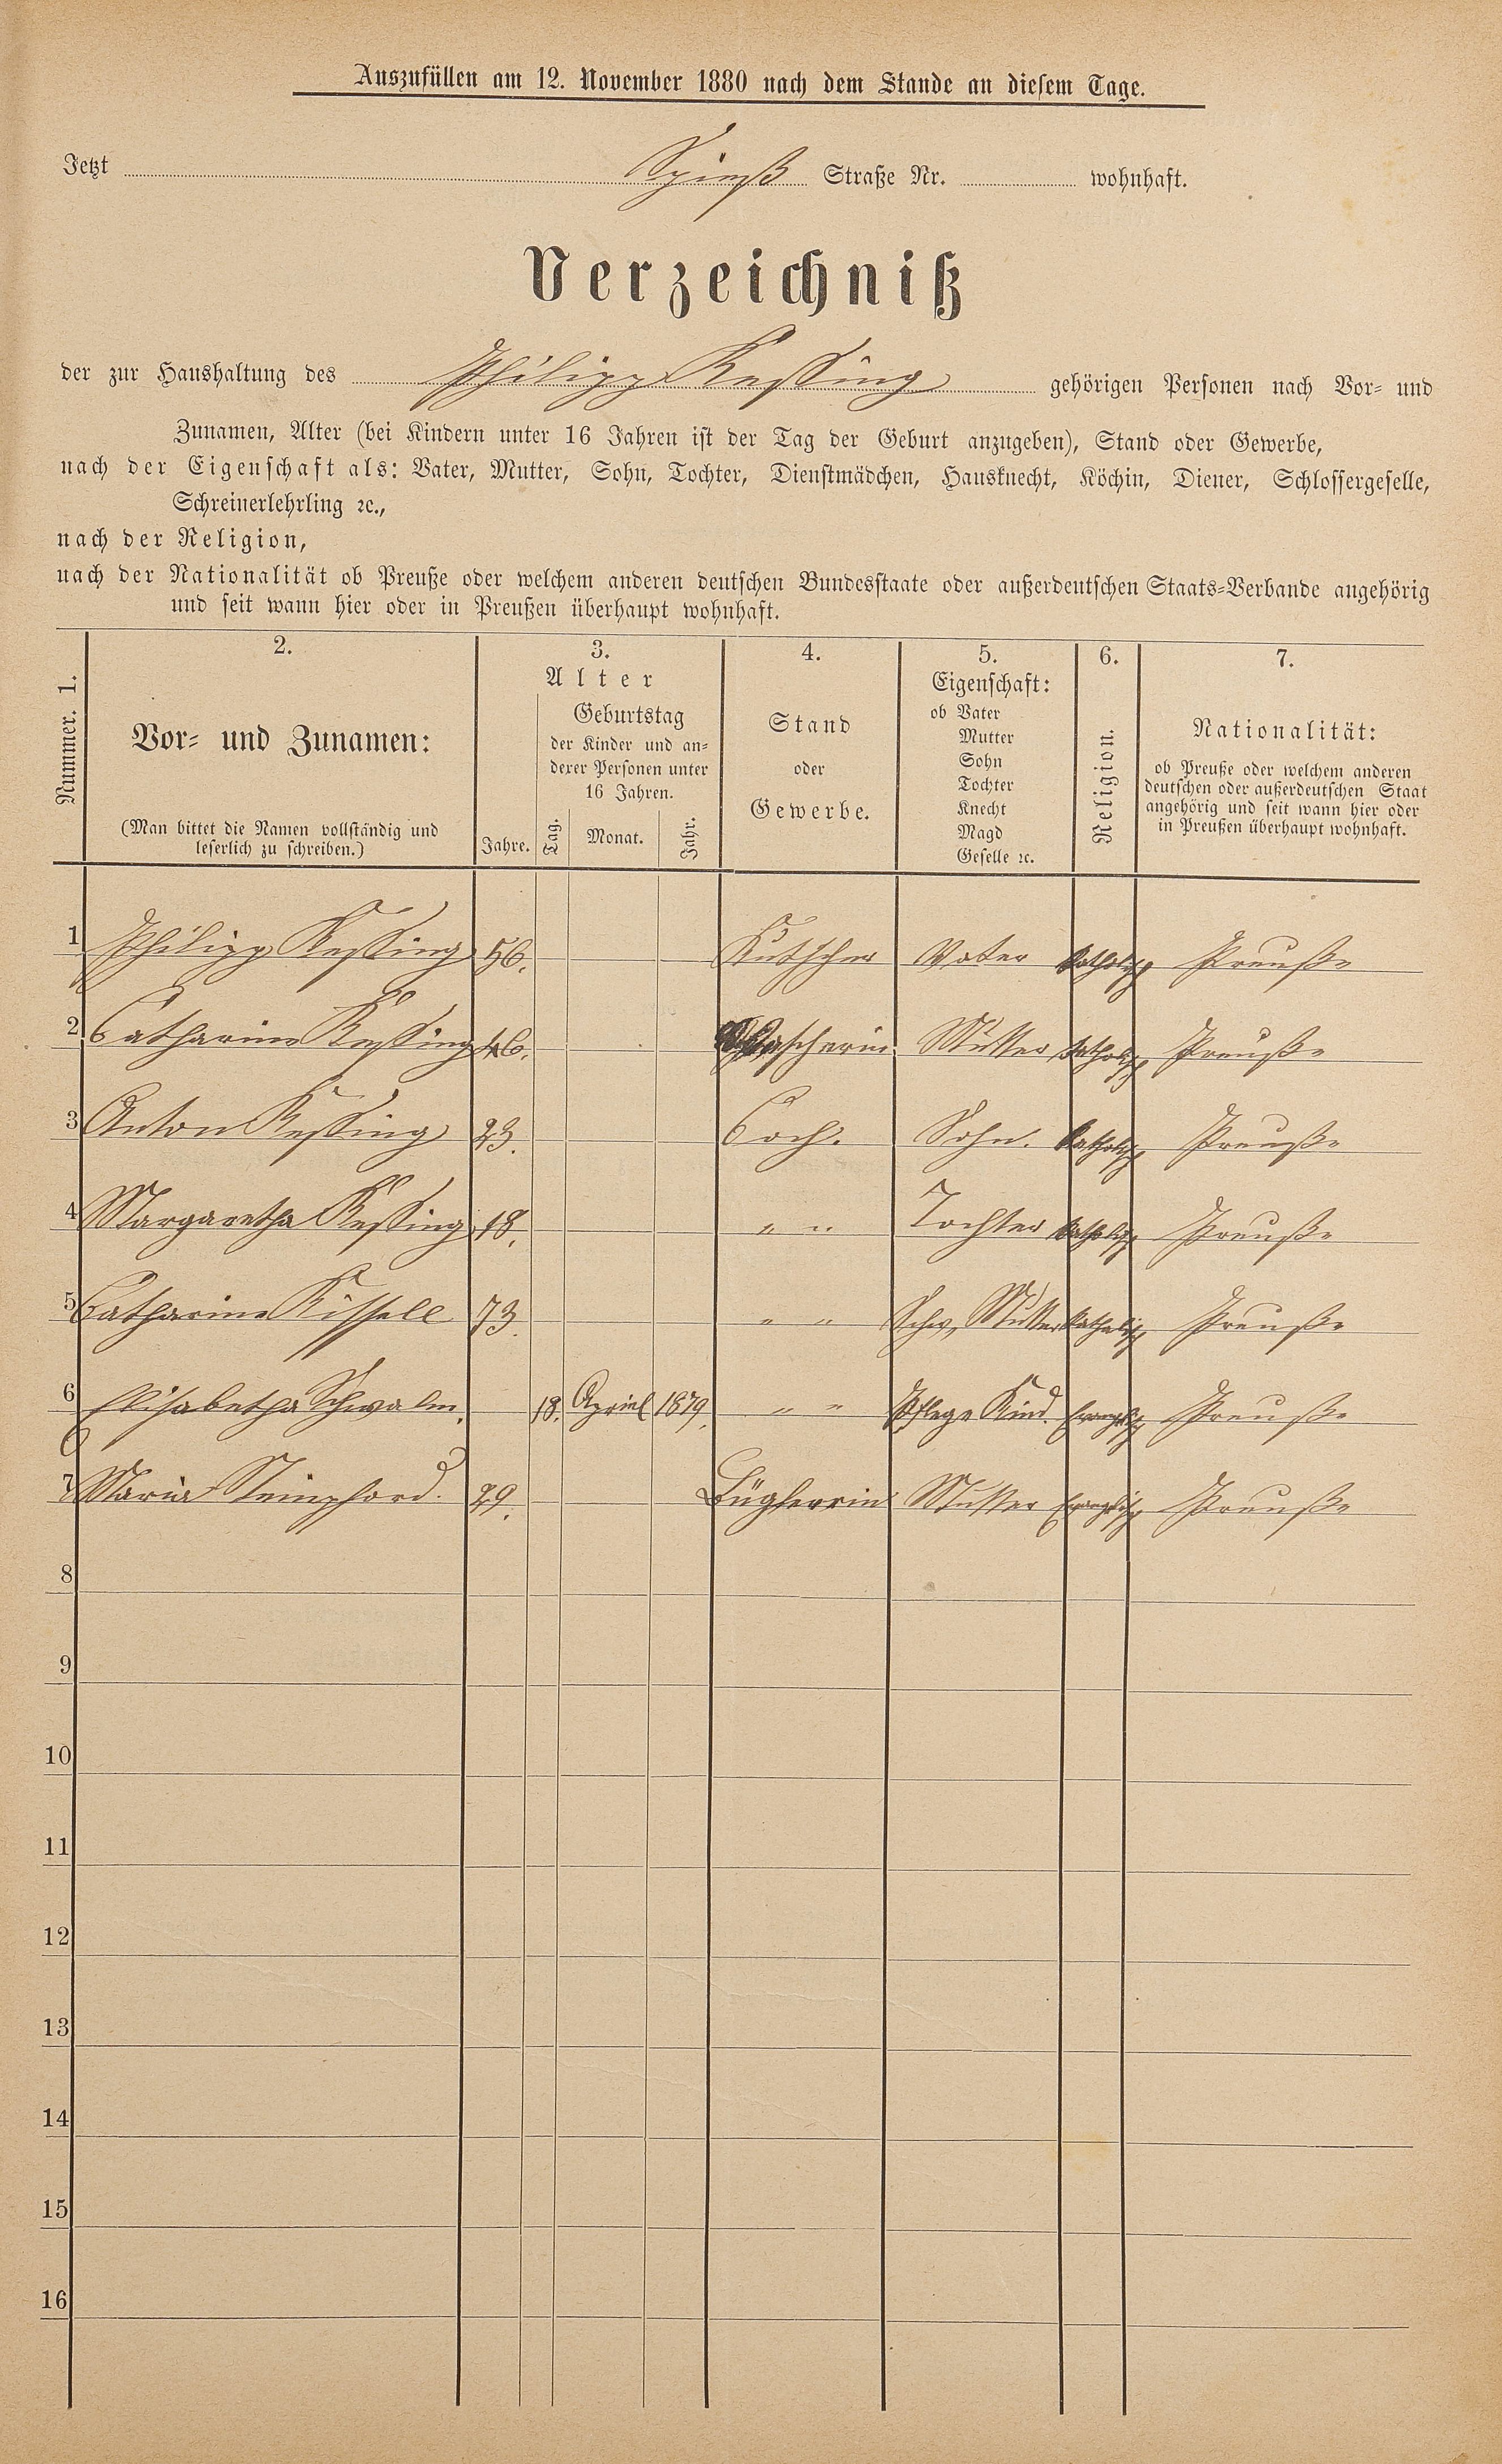 Auszufüllen am 12. November 1880 nach dem Stande an diesem Tage.
Jetzt Straße Nr. wohnhaft.
Verzeichniß
der zur Haushaltung des Philipp Kessing gehörigen Personen nach Vor- und
Zunamen, Alter (bei Kindern unter 16 Jahren ist der Tag der Geburt anzugeben), Stand oder Gewerbe,
nach der Eigenschaft als: Vater, Mutter, Sohn, Tochter, Dienstmädchen, Hausknecht, Köchin, Diener, Schlossergeselle,
Schreinerlehrling ꝛc.,
nach der Religion,
nach der Nationalität ob Preuße oder welchem anderen deutschen Bundesstaate oder außerdeutschen Staats-Verbande angehörig
und seit wann hier oder in Preußen überhaupt wohnhaft.
Nummer. 1.
2.
Vor- und Zunamen:
(Man bittet die Namen vollständig und
leserlich zu schreiben.)
3.
Alter
Jahre.
Geburtstag
der Kinder und an-
derer Personen unter
16 Jahren.
Tag. Monat. Jahr.
4.
Stand
oder
Gewerbe.
5.
Eigenschaft:
ob Vater
Mutter
Sohn
Tochter
Knecht
Magd
Geselle ꝛc.
6.
Religion.
7.
Nationalität:
ob Preuße oder welchem anderen
deutschen oder außerdeutschen Staat
angehörig und seit wann hier oder
in Preußen überhaupt wohnhaft.
1 Philipp Kessing 56. Kutscher Vater Katholisch Preuße
2 Catharine Kessing 46. Wascherin Mutter Katholisch Preuße
3 Anton Kessing 23. Coch. Sohn. Katholisch Preuße
4 Margaretha Kessing 18. " " Tochter Katholisch Preuße
5 Catharine Kissell 73. " " Schw. Mutter Katholisch Preuße
6 Elisabetha Schwalm. 18. Apriel 1879. " " Pflege Kind. Evangelisch Preuße
7 Maria 29. Büglerrin Mutter Evangelisch Preuße
8
9
10
11
12
13
14
15
16